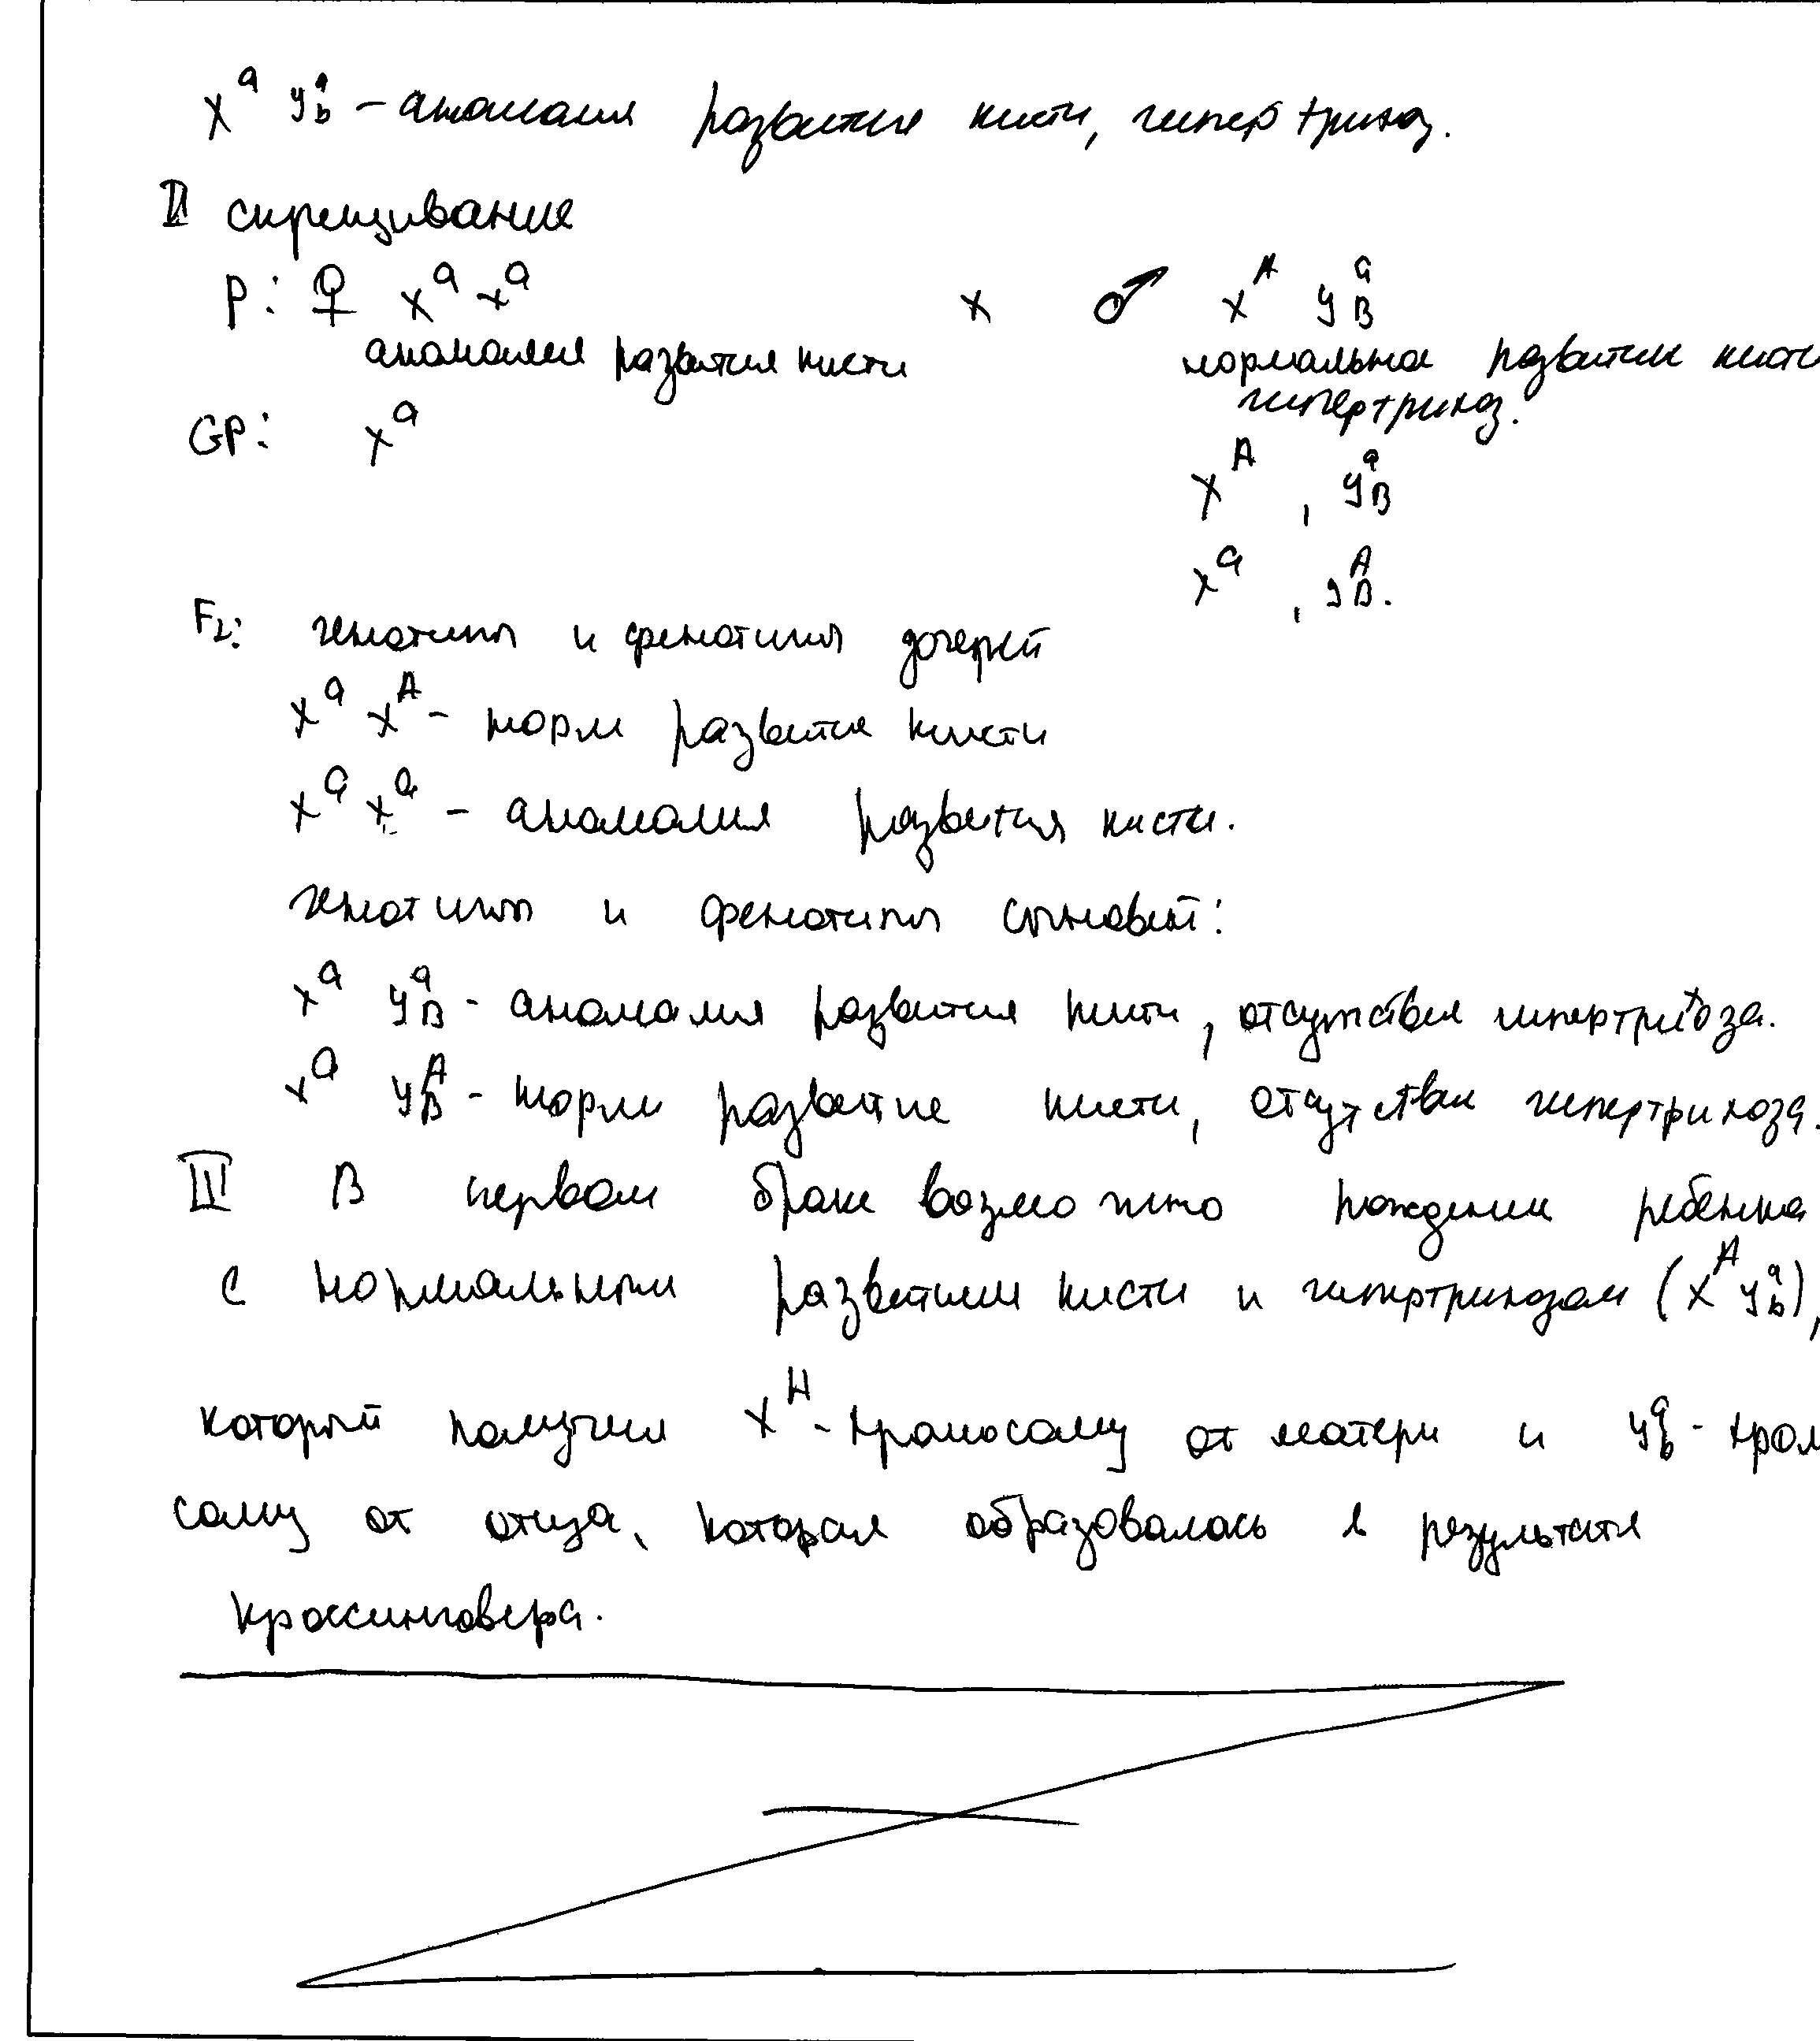 X^a У_b^a – аномалия развития кисти, гипертрихоз.
II скрещивание
P: ♀ X^a X^a x ♂ X^A У_B^a
аномалия развития кисти нормальное развитие кисти
гипертрихоз.
GP: X^a X^A , У_B^a
X^a , У_B^A.
F2: генотипы и фенотипы дочерей
X^a X^A – норм развитие кисти
X^a X^a – аномалия развития кисти.
генотипы и фенотипы сыновей:
X^a У_B^a - аномалия развития кисти, отсутствие гипертрихоза.
X^a У_B^A - норм развитие кисти, отсутствие гипертрихоза.
III В первом браке возможно рождение ребенка
с нормальным развитием кисти и гипертрихозом (X^A У_b^a),
который получил X^A-хромосому от матери и У_b^a-хромо
сому от отца, которая образовалась в результате
кроссинговера.